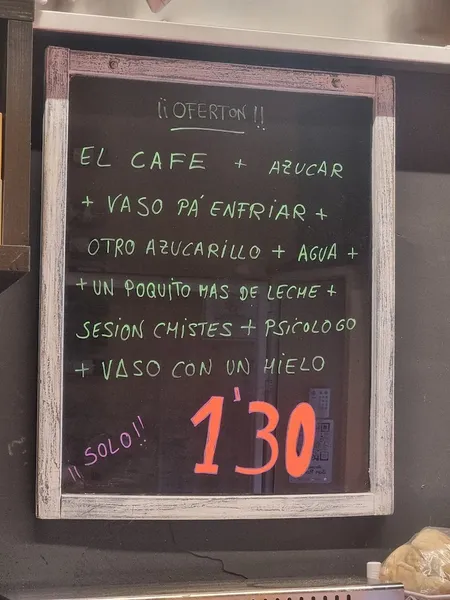 ¡¡OFERTON!!
EL CAFE + AZUCAR
+ VASO PA' ENFRIAR +
OTRO AZUCARILLO + AGUA +
+ UN POQUITO MAS DE LECHE +
SESION CHISTES + PSICOLOGO
+ VASO CON UN HIELO
¡¡SOLO!! 1'30